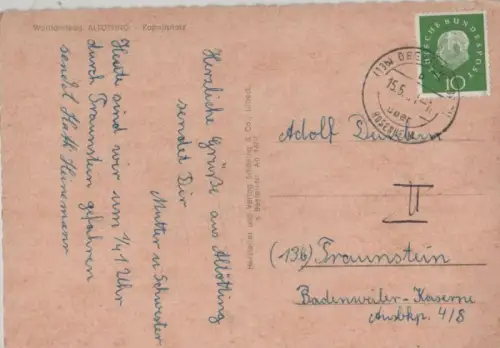 Wallfahrtsort ALTÖTTING - Kapellplatz
Herzliche Grüße aus Altötting
sendet Dir
Mutter u Schwester
Heute sind wir um 1/41 Uhr
durch Traunstein gefahren
sendet Kath
DEUTSCHE BUNDESPOST
10
15.5.
über
ROSENHEIM
Adolf
II
(13b) Traunstein
Badenweiler-Kaserne
Ausbkp. 4/8
Hersteller und Verlag